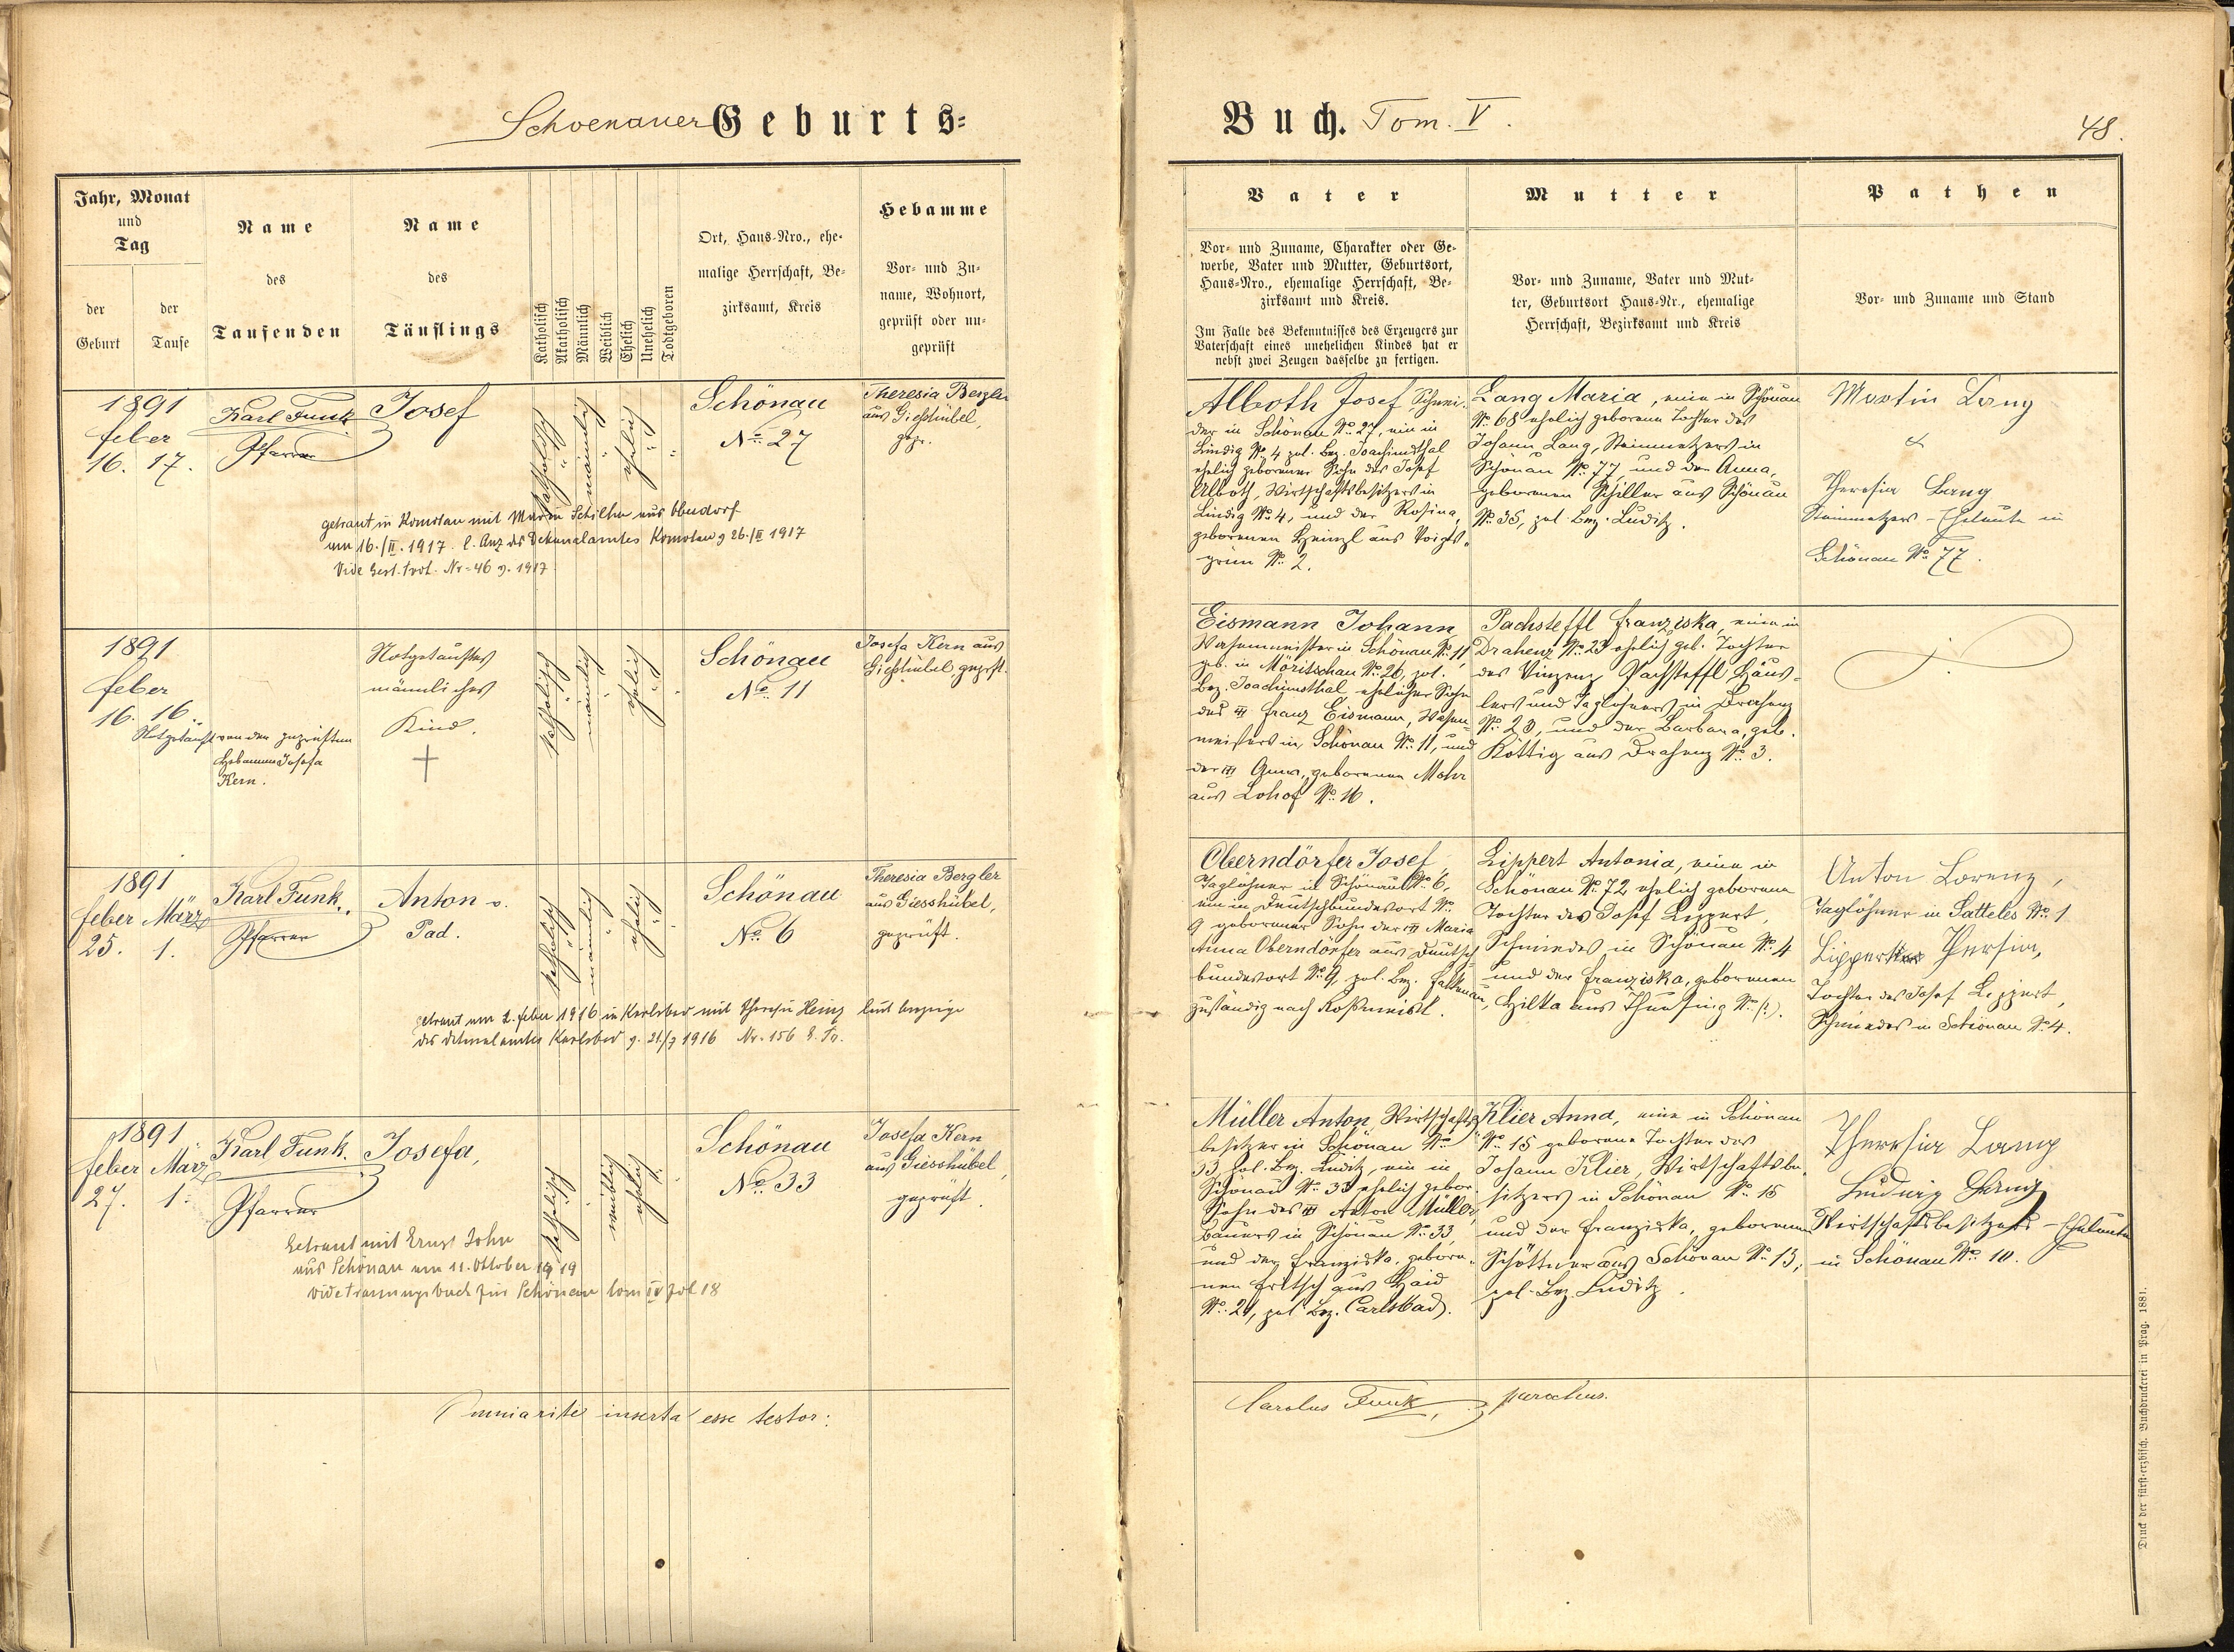 Schoenauer Geburts-
Buch. Tom. V.
48.
Jahr, Monat
und
Tag
der
Geburt
der
Taufe
Name
des
Taufenden
Name
des
Täuflings
Katholisch
Akatholisch
Männlich
Weiblich
Ehelich
Unehelich
Todtgeboren
Ort, Haus-Nro., ehe-
malige Herrschaft, Be-
zirksamt, Kreis
Hebamme
Vor- und Zu-
name, Wohnort,
geprüft oder un-
geprüft
Vater
Vor- und Zuname, Charakter oder Ge-
werbe, Vater und Mutter, Geburtsort,
Haus-Nro., ehemalige Herrschaft, Be-
zirksamt und Kreis.
Im Falle des Bekenntnisses des Erzeugers zur
Vaterschaft eines unehelichen Kindes hat er
nebst zwei Zeugen dasselbe zu fertigen.
Mutter
Vor- und Zuname, Vater und Mut-
ter, Geburtsort Haus-Nr., ehemalige
Herrschaft, Bezirksamt und Kreis
Pathen
Vor- und Zuname und Stand
1891
feber
16. 17.
Karl Funk
Pfarrer
Josef
katholisch
männlich
ehelich
Schönau
No. 27
Theresia Bergler
aus Gießhübel,
gepr.
getraut in Komotau mit Maria Schiller aus Oberdorf
am 16./II. 1917. l. Anz des Dekanalamtes Komotau 26./II 1917
Vide Gest. Prot. Nr. 46 1917
Alboth Josef, Schnei-
der in Schönau No. 27, ein in
Lindig No. 4 pol. Bez. Joachimsthal
ehelich geborener Sohn des Josef
Alboth, Wirtschaftsbesitzers in
Lindig No. 4, und der Rosina,
geborenen Heinzl aus Voigts-
grün No. 2.
Lang Maria, eine in Schönau
No. 68 ehelich geborene Tochter des
Johann Lang, Steinmetzers in
Schönau No. 77, und der Anna,
geborenen Schiller aus Schönau
No. 35, pol. Bez. Luditz.
Martin Lang
&
Theresia Lang
Steinmetzers-Eheleute in
Schönau No. 77.
1891
feber
16. 16.
Notgetauft von der geprüften
Hebamme Josefa
Kern.
Notgetauftes
männliches
Kind.
katholisch
männlich
ehelich
Schönau
No. 11
Josefa Kern aus
Gießhübel, geprft.
Eismann Johann
Wasenmeister in Schönau No. 11,
geb. in Möritschau No. 26, pol.
Bez. Joachimsthal, ehelicher Sohn
des Franz Eismann, Wasen-
meisters in Schönau No. 11, und
der Anna, geborenen Mohr
aus Lohof No. 16.
Pachsteffl Franziska, eine in
Drahenz No. 23 ehelich geb. Tochter
des Vinzenz Pachsteffl, Häus-
lers und Taglöhners in Drahenz
No. 23, und der Barbara, geb.
Köttig aus Drahenz No. 3.
1891
feber März
25. 1.
Karl Funk.
Pfarrer
Anton v.
Pad.
katholisch
männlich
ehelich
Schönau
No. 6
Theresia Bergler
aus Giesshübel,
geprüft.
getraut am 2. feber 1916 in Karlsbad mit Theresia Heinz laut Anzeige
des Dekanalamtes Karlsbad 1916 Nr. 156
Oberndörfer Josef,
Taglöhner in Schönau No. 6,
ein in Deutschbundesort No.
9 geborener Sohn der Maria
Anna Oberndörfer aus Deutsch-
bundesort No. 9, pol. Bez. Falkenau,
zuständig nach Roßmeisl.
Lippert Antonia, eine in
Schönau No. 72 ehelich geborene
Tochter des Josef Lippert,
Schmiedes in Schönau No. 4
und der Franziska, geborenen
Hilka aus
Anton Lorenz,
Taglöhner in Satteles No. 1
Lippert Thersia,
Tochter des Josef Lippert,
Schmiedes in Schönau No. 4.
1891
feber März
27. 1.
Karl Funk.
Pfarrer
Josefa,
katholisch
weiblich
ehelich
Schönau
No. 33
Josefa Kern
aus Giesshübel,
geprüft.
Getraut mit Ernst John
aus Schönau am 11. Oktober 1919
vide Trauungsbuch für Schönau Tom IV fol 18
Müller Anton, Wirtschafts-
besitzer in Schönau No.
33, pol. Bez. Luditz, ein in
Schönau No. 33 ehelich gebor.
Sohn des Anton Müller,
Bauers in Schönau No. 33,
und der Franziska, gebore-
nen Fritsch aus Haid
No. 21, pol. Bez. Carlsbad.
Klier Anna, eine in Schönau
No. 15 geborene Tochter des
Johann Klier, Wirtschaftsbe-
sitzers in Schönau No. 15
und der Franziska, geborenen
Schöttner aus Schönau No. 13,
pol. Bez. Luditz.
Theresia Lang
Ludwig Lang
Wirtschaftsbesitzers-Eheleute
in Schönau No. 10.
inserta esse testor:
Carolus Funk, parochus.
Druck der fürst-erzbisch. Buchdruckerei in Prag. 1881.